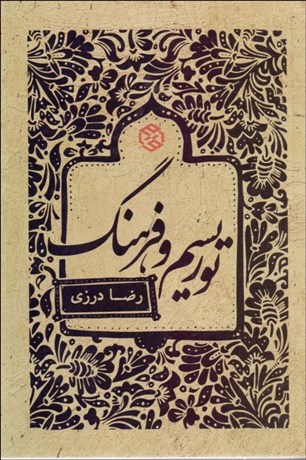 توریسم و فرهنگ
رضا درزی